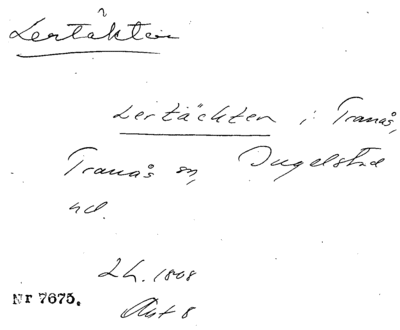 Lertäkten
Lertäckten i Tranås,
Tranås sn, Ingelstad
hd.
Lh. 1808
Nr 7675. Akt 8